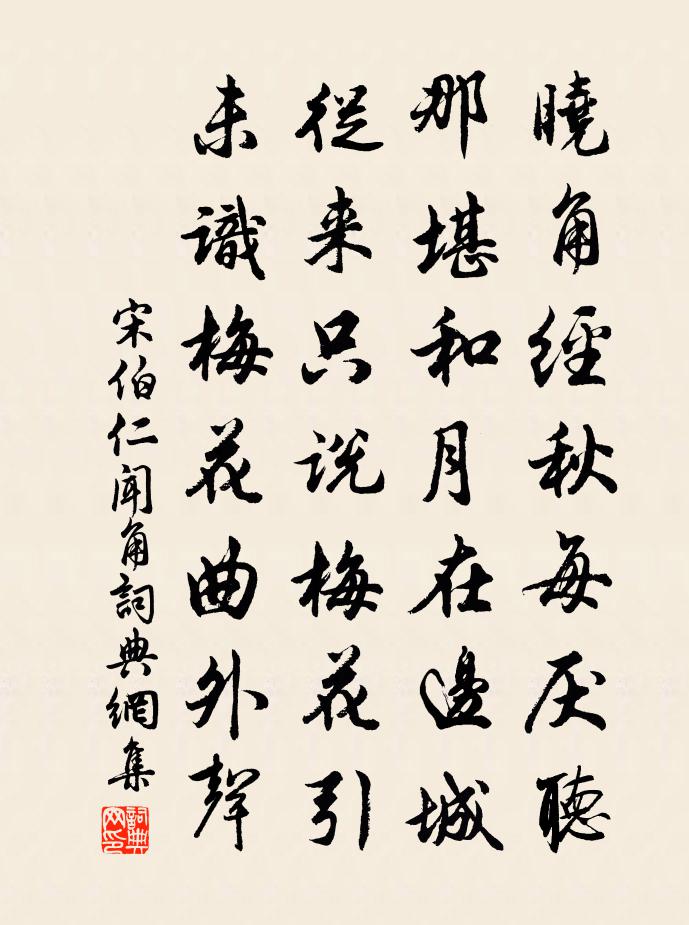 曉角經秋每厌聽
那堪和月在邊城
從来只説梅花引
未識梅花曲外聲
宋伯仁聞角詞典網集
詞典网印